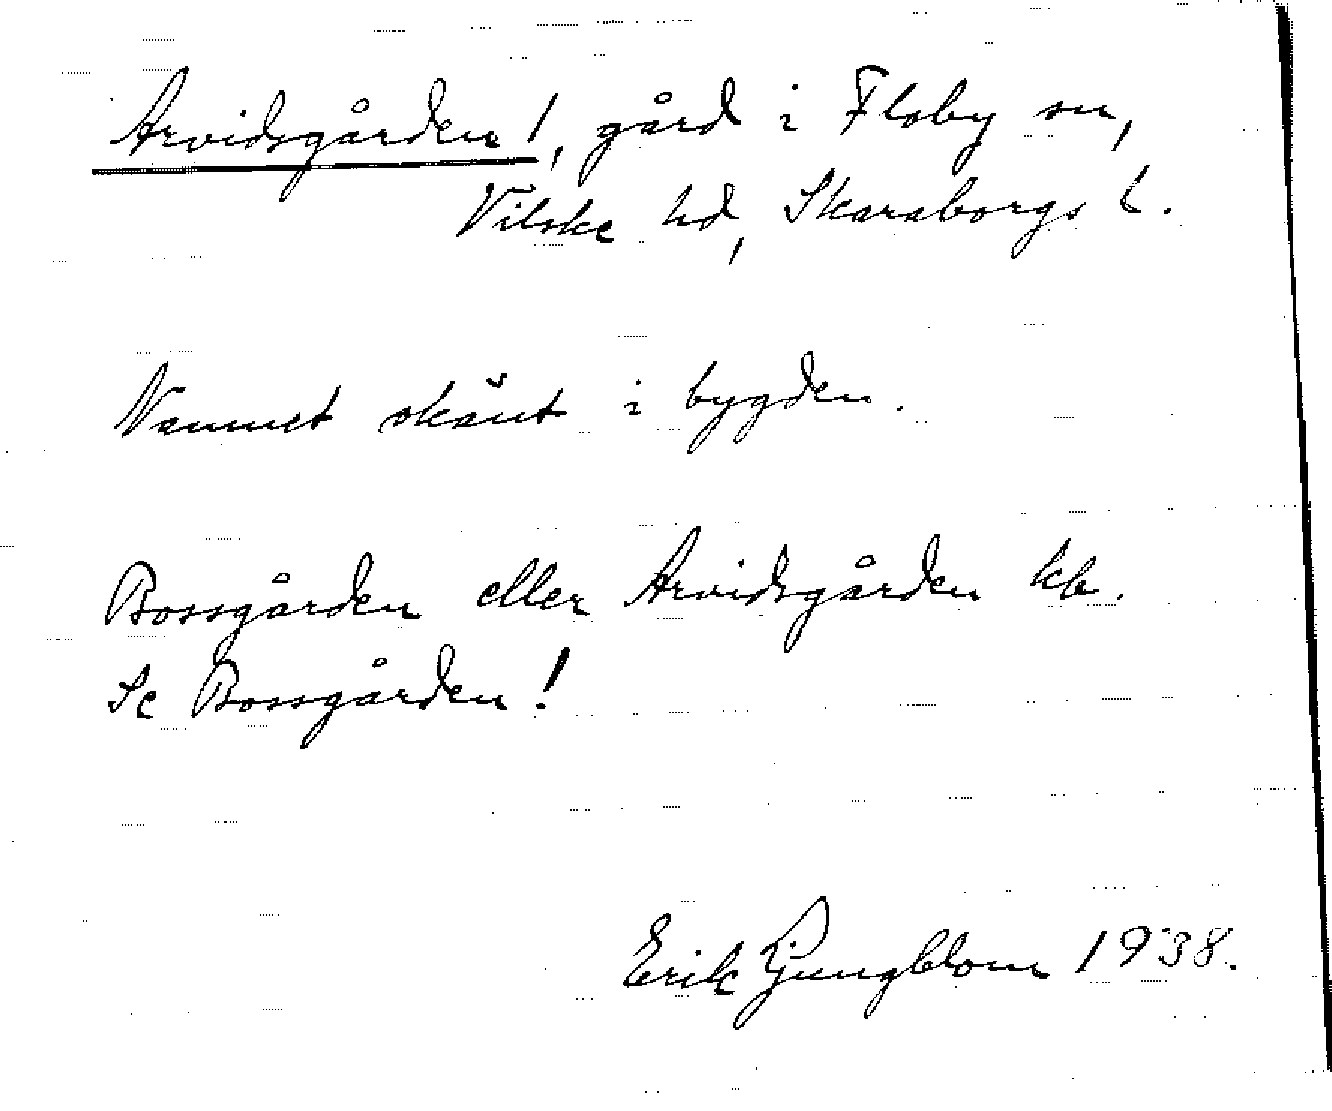 Arvidsgården 1, gård i Floby sn,
Vilske hd, Skaraborgs l.
Namnet okänt i bygden.
Bossgården eller Arvidsgården kb.
Se Bossgården!
Erik Ljungblom 1938.